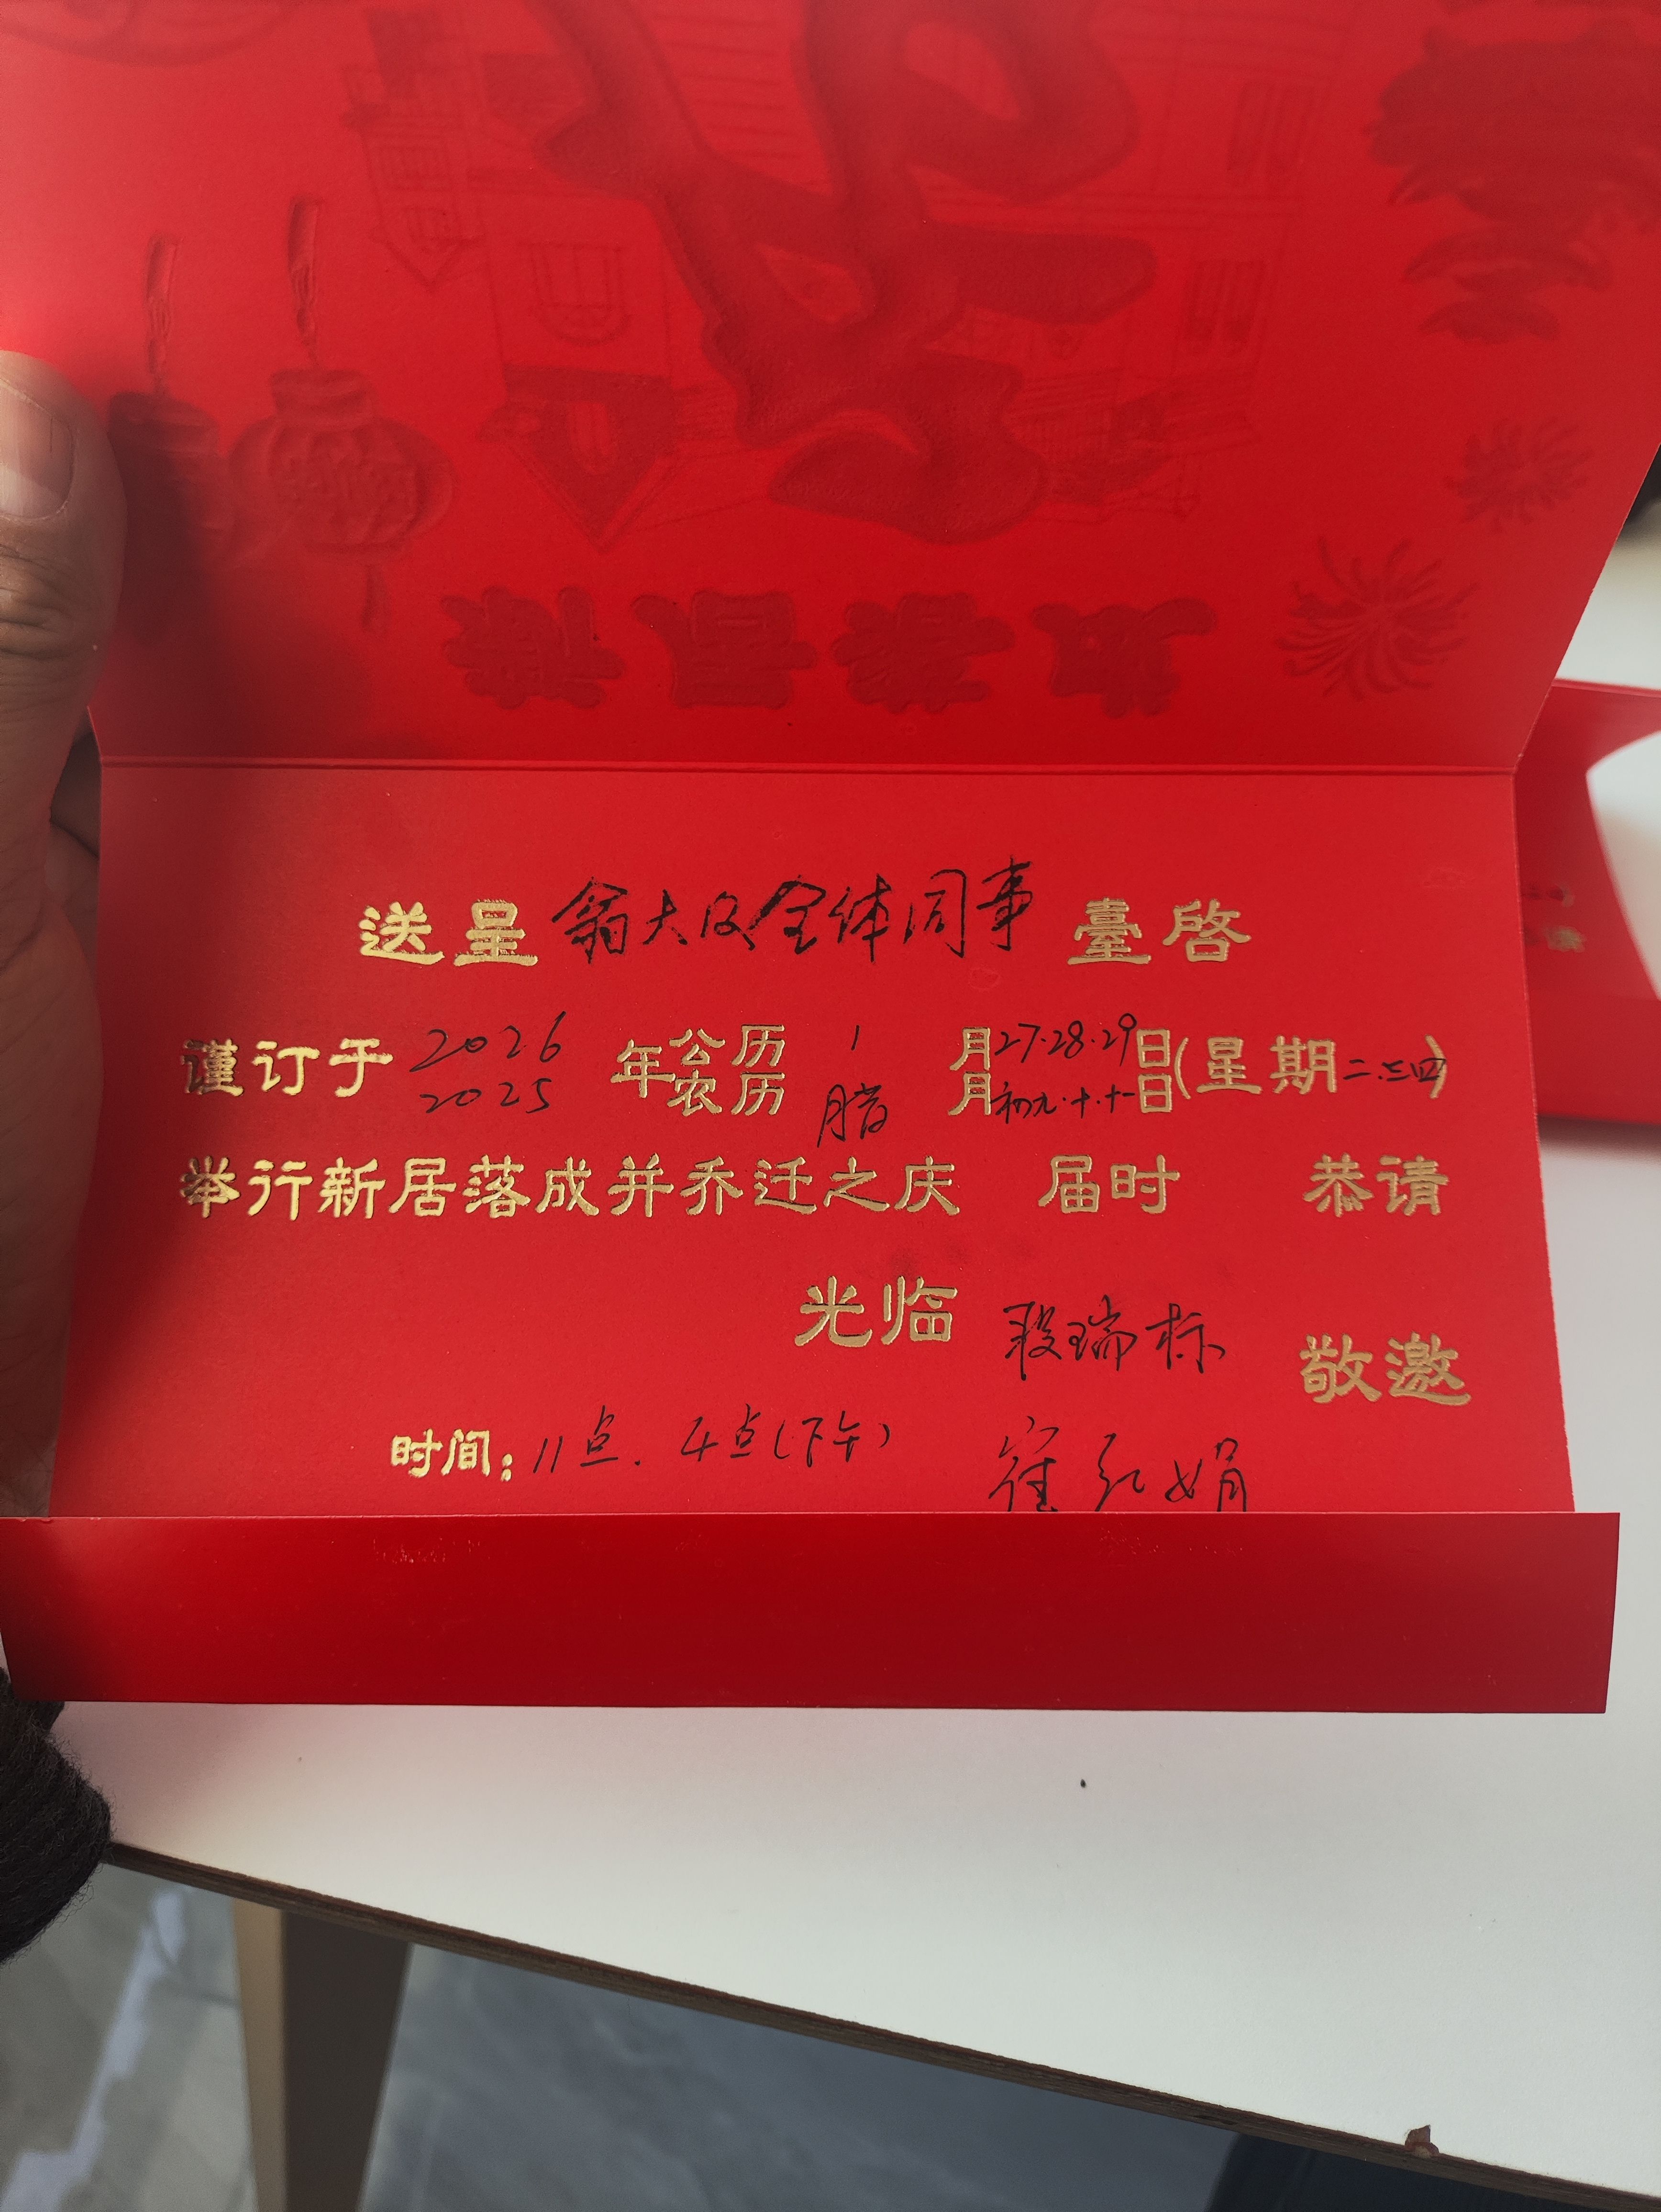 送呈 翁大及全体同事 臺启
谨订于 2026 年公历 1 月27.28.29日(星期二.三四)
2025 农历 腊 月初九.十.十一日
举行新居落成并乔迁之庆 届时 恭请
光临 段瑞标 敬邀
时间: 11点. 4点(下午) 崔红娟